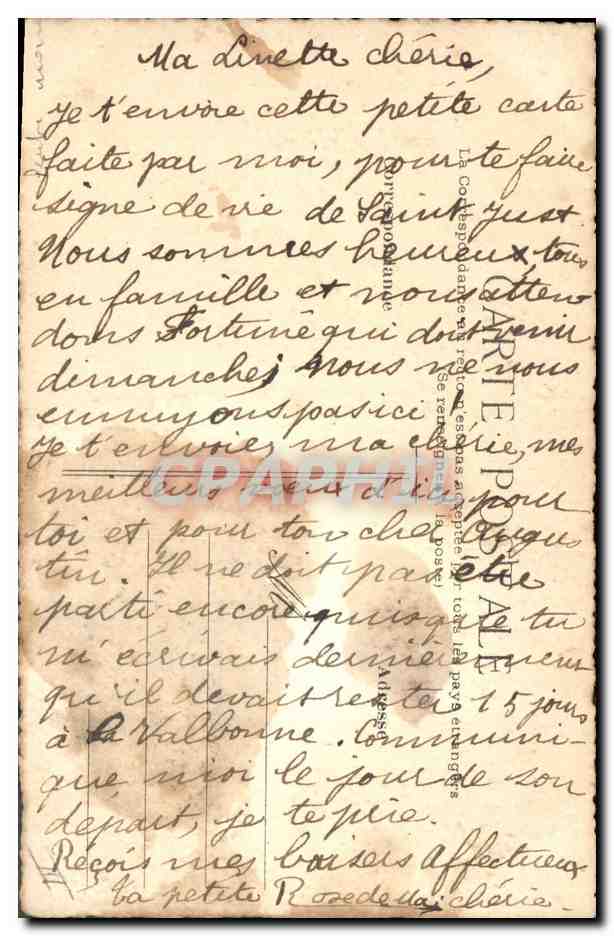 Ma Linette chérie,
Je t'envoie cette petite carte
faite par moi, pour te faire
signe de vie de Saint Just
Nous sommes heureux, tous
en famille et nous atten
dons Fortuné qui doit venir
dimanche, nous ne nous
ennuyons pas ici !
Je t'envoie, ma chérie, mes
meilleurs voeux d'ici, pour
toi et pour ton cher Augus
tin. Il ne doit pas être
parti encore, puisque tu
m'écrivais dernièrement
qu'il devait rester 15 jours
à la Valbonne. Communi-
que moi le jour de son
départ, je te prie.
Reçois mes baisers affectueux
Ta petite Rose de Mai chérie.
CARTE POSTALE
La Correspondance au recto n'est pas acceptée par tous les pays étrangers
(Se renseigner à la poste)
Correspondance
Adresse
CPAPHIL